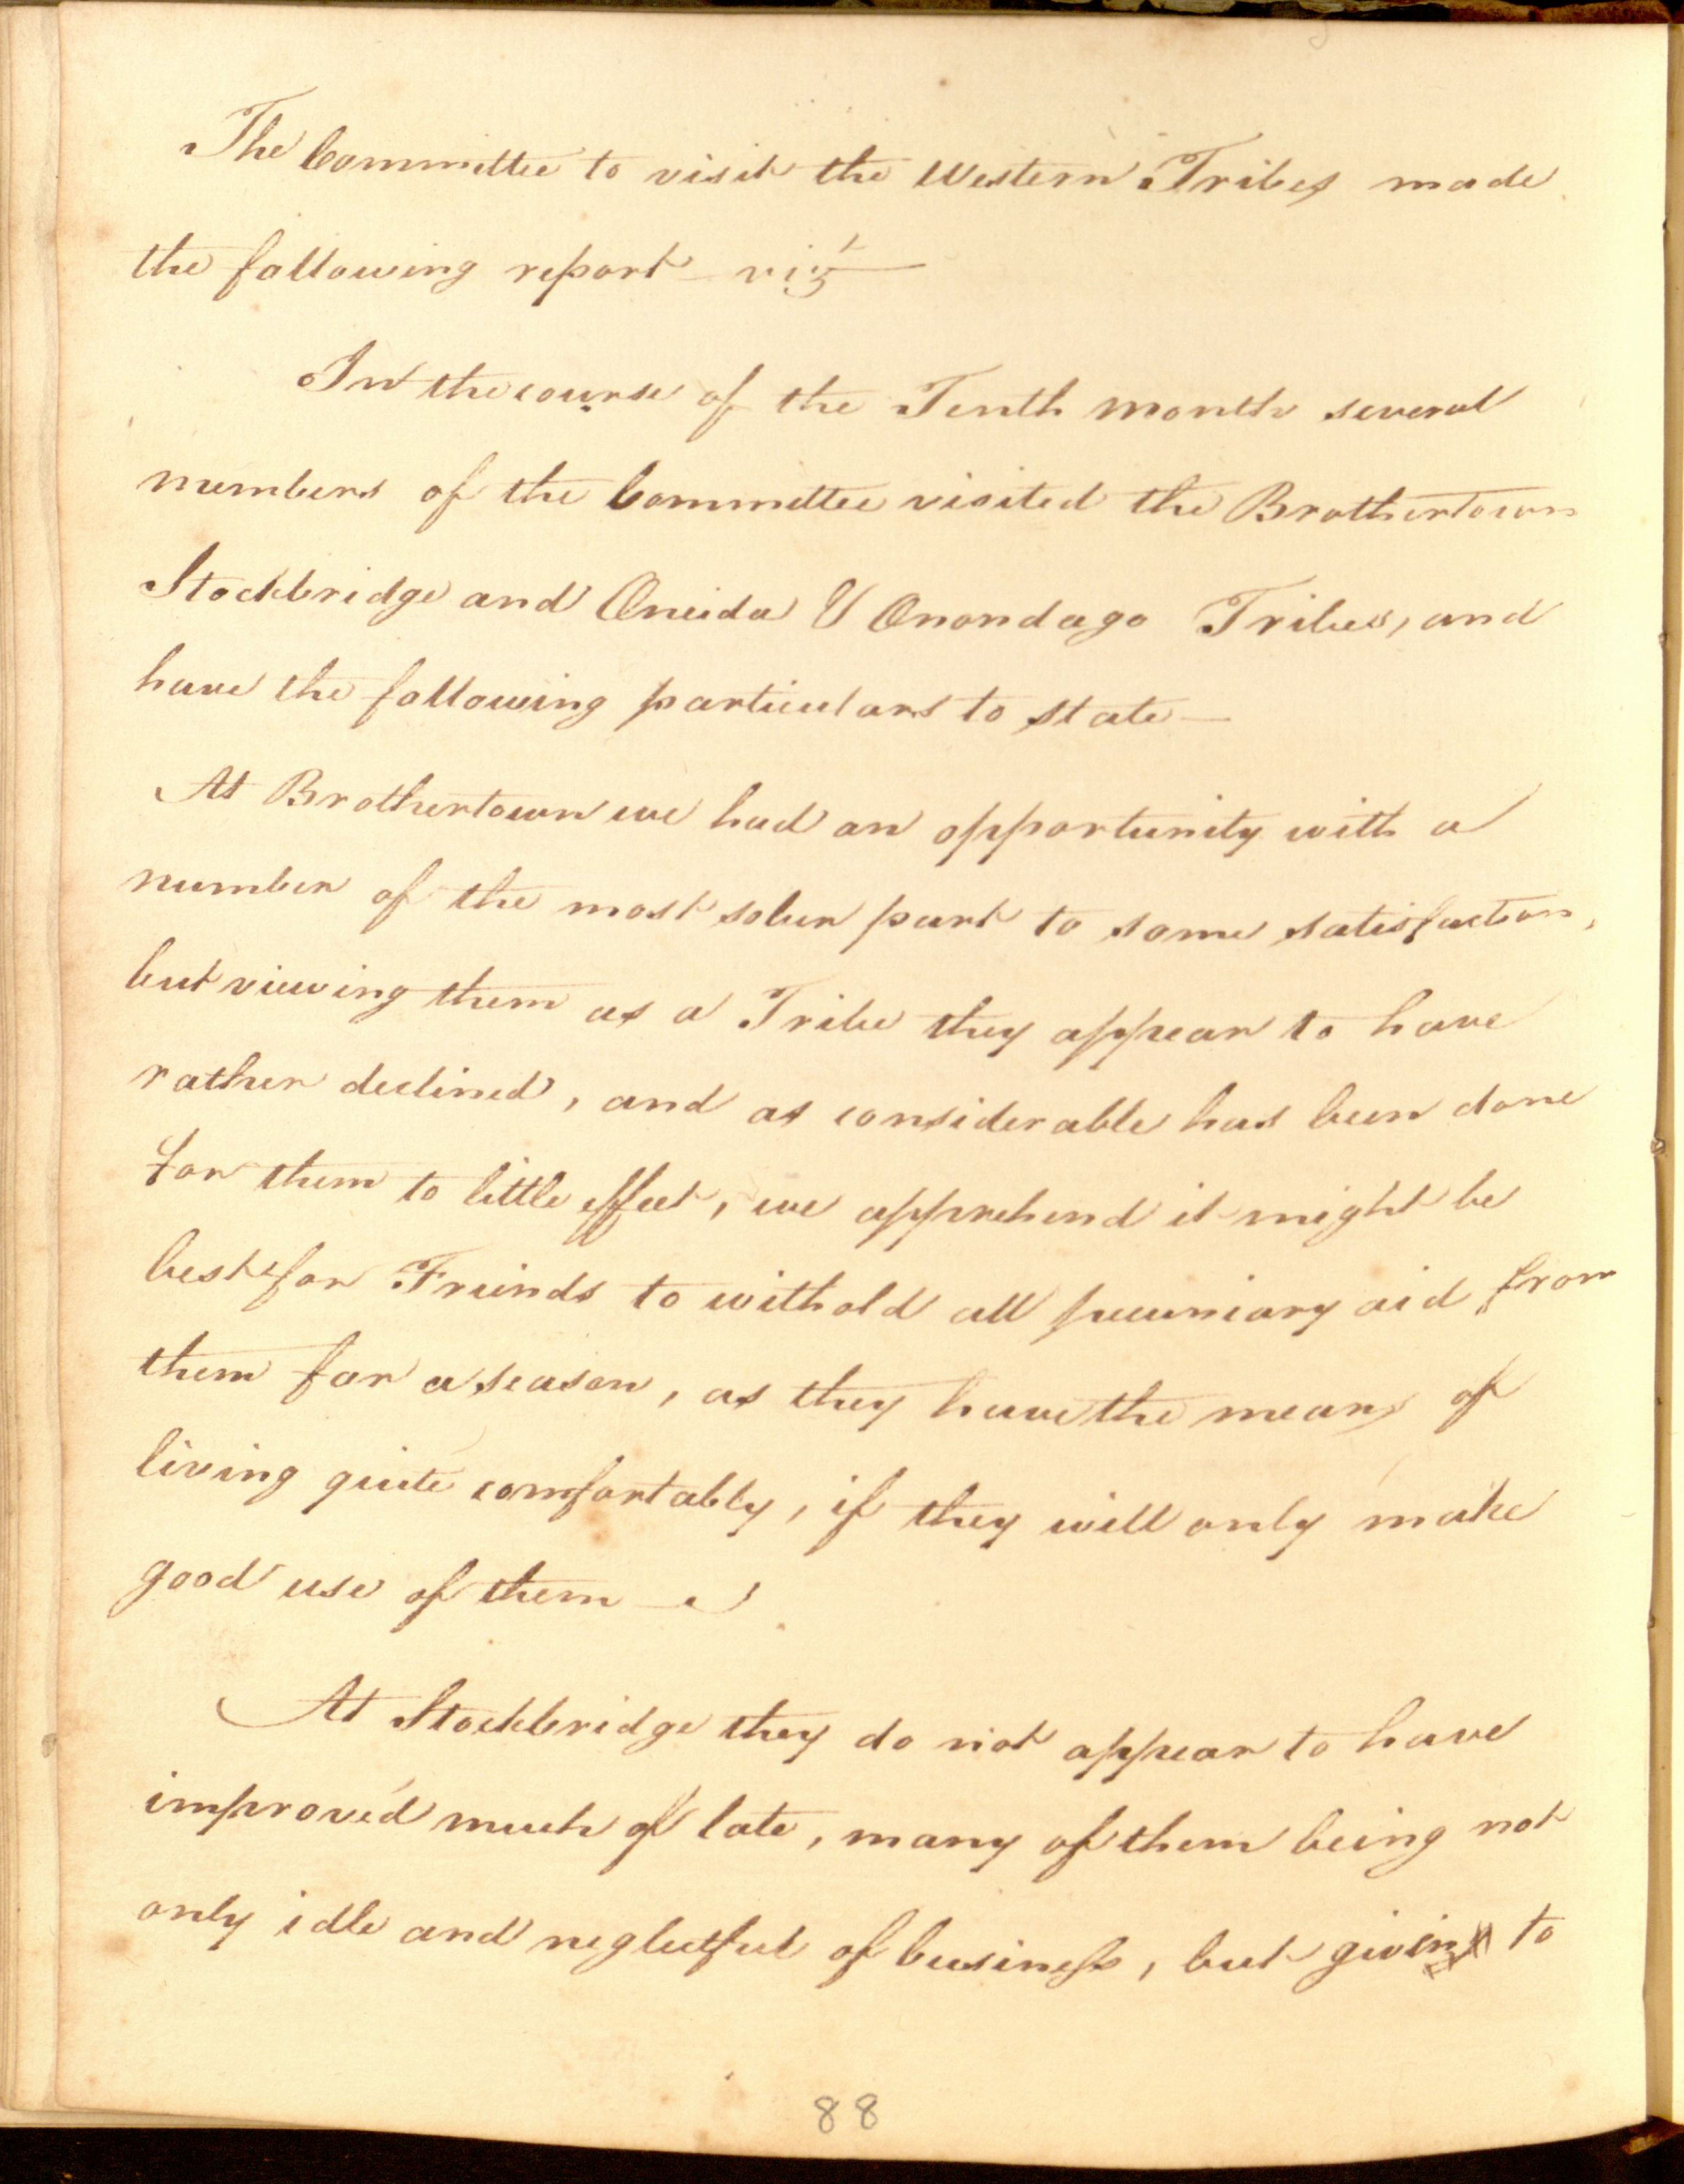 The Committee to visit the Western Tribes made
the following report viz
In the course of the Tenth month several
members of the Committee visited the Brothertown
Stockbridge and Oneida & Onondago Tribes, and
have the following particulars to state—
At Brothertown we had an opportunity with a
number of the most sober part to some satisfaction,
but viewing them as a Tribe they appear to have
rather declined, and as considerable has been done
for them to little effect, we apprehend it might be
best for Friends to withold all pecuniary aid from
them for a season, as they have the means of
living quite comfortably, if they will only make
good use of them
At Stockbridge they do not appear to have
improved much of late, many of them being not
only idle and neglectful of business, but givin to
88